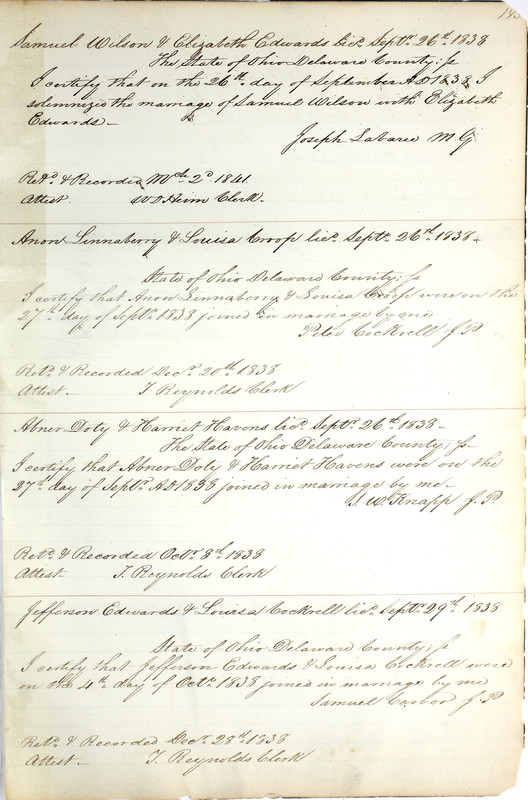 Samuel Wilson & Elizabeth Edwards licd. Septr. 26th. 1838
The State of Ohio Delaware County; ss
I certify that on the 26th. day of September AD 1838 I
solemnized the marriage of Samuel Wilson with Elizabeth
Edwards —
Joseph Labaree M G
Retd. & Recorded Mch. 2d 1841.
Attest. W D Heim Clerk.
Anon Linnaberry & Louisa Croop licd. Septr. 26th. 1838
State of Ohio Delaware County; ss
I certify that Anon Linnaberry & Louisa Croop were on the
27th. day of Septr. 1838 joined in marriage by me
Peter Cockrell J. P.
Retd. & Recorded Decr. 20th. 1838
Attest — T Reynolds Clerk
Abner Doty & Harriet Havens licd. Septr. 26th. 1838 —
The State of Ohio Delaware County; ss
I certify that Abner Doty & Harriet Havens were on the
27th. day of Septr. AD 1838 joined in marriage by me —
W. Knapp J. P.
Retd. & Recorded Octr. 8th. 1838
Attest — T. Reynolds Clerk
Jefferson Edwards & Louisa Cockrell licd. Septr. 29th. 1838
State of Ohio Delaware County; ss
I certify that Jefferson Edwards & Louisa Cockrell were
on the 4th. day of Octr. 1838 joined in marriage by me
Samuel J. P.
Retd. & Recorded Decr. 28th. 1838
Attest — T. Reynolds Clerk